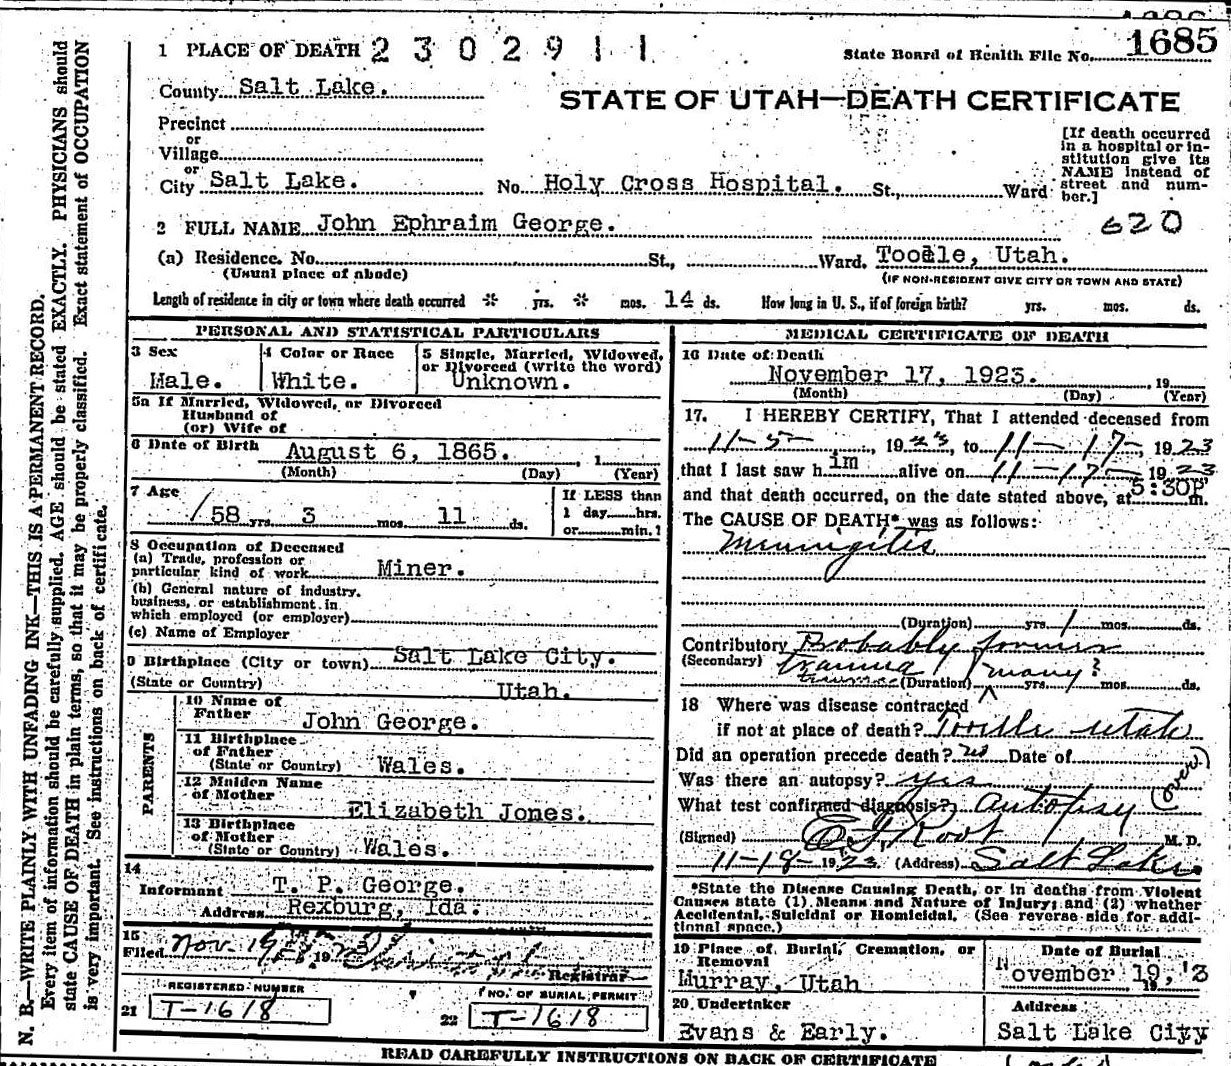 1 PLACE OF DEATH 2 3 0 2 9 1 1
State Board of Health File No. 1685
County Salt Lake.
STATE OF UTAH—DEATH CERTIFICATE
Precinct
or
Village
or
City Salt Lake. No. Holy Cross Hospital. St., Ward
[If death occurred
in a hospital or in-
stitution give its
NAME instead of
street and num-
ber.]
620
2 FULL NAME John Ephraim George.
(a) Residence. No. St., Ward. Tooele, Utah.
(Usual place of abode) (IF NON-RESIDENT GIVE CITY OR TOWN AND STATE)
Length of residence in city or town where death occurred * yrs. * mos. 14 ds. How long in U. S., if of foreign birth? yrs. mos. ds.
PERSONAL AND STATISTICAL PARTICULARS
3 Sex
Male.
4 Color or Race
White.
5 Single, Married, Widowed,
or Divorced (write the word)
Unknown.
5a If Married, Widowed, or Divorced
Husband of
(or) Wife of
6 Date of Birth August 6, 1865. , 1
(Month) (Day) (Year)
7 Age
58 yrs. 3 mos. 11 ds.
If LESS than
1 day hrs.
or min.?
8 Occupation of Deceased
(a) Trade, profession or
particular kind of work Miner.
(b) General nature of industry,
business, or establishment in
which employed (or employer)
(c) Name of Employer
9 Birthplace (City or town) Salt Lake City.
(State or Country) Utah.
PARENTS
10 Name of
Father John George.
11 Birthplace
of Father
(State or Country) Wales.
12 Maiden Name
of Mother
Elizabeth Jones.
13 Birthplace
of Mother
(State or Country) Wales.
14
Informant T. P. George.
Address Rexburg, Ida.
15
Filed Nov. 19 19
Registrar
REGISTERED NUMBER
21 T-1618
NO. OF BURIAL PERMIT
22 T-1618
MEDICAL CERTIFICATE OF DEATH
16 Date of Death
November 17, 1923. , 19
(Month) (Day) (Year)
17. I HEREBY CERTIFY, That I attended deceased from
11-5- , 1923, to 11-17-, 1923
that I last saw him alive on 11-17-, 1923
and that death occurred, on the date stated above, at 5:30P m.
The CAUSE OF DEATH* was as follows:
Meningitis
(Duration) yrs. 1 mos. ds.
Contributory Probably former
(Secondary) trauma
(Duration) many? yrs. mos. ds.
18 Where was disease contracted
if not at place of death? Tooele Utah
Did an operation precede death? no Date of
Was there an autopsy? yes
What test confirmed diagnosis? autopsy (over)
(Signed) E. F. Root M. D.
11-18-1923 (Address) Salt Lake
*State the Disease Causing Death, or in deaths from Violent
Causes state (1) Means and Nature of Injury; and (2) whether
Accidental, Suicidal or Homicidal. (See reverse side for addi-
tional space.)
19 Place of Burial, Cremation, or
Removal
Murray, Utah
Date of Burial
November 19, '3
19
20 Undertaker
Evans & Early.
Address
Salt Lake City
READ CAREFULLY INSTRUCTIONS ON BACK OF CERTIFICATE
N. B.—WRITE PLAINLY WITH UNFADING INK—THIS IS A PERMANENT RECORD.
Every item of information should be carefully supplied. AGE should be stated EXACTLY. PHYSICIANS should
state CAUSE OF DEATH in plain terms, so that it may be properly classified. Exact statement of OCCUPATION
is very important. See instructions on back of certificate.